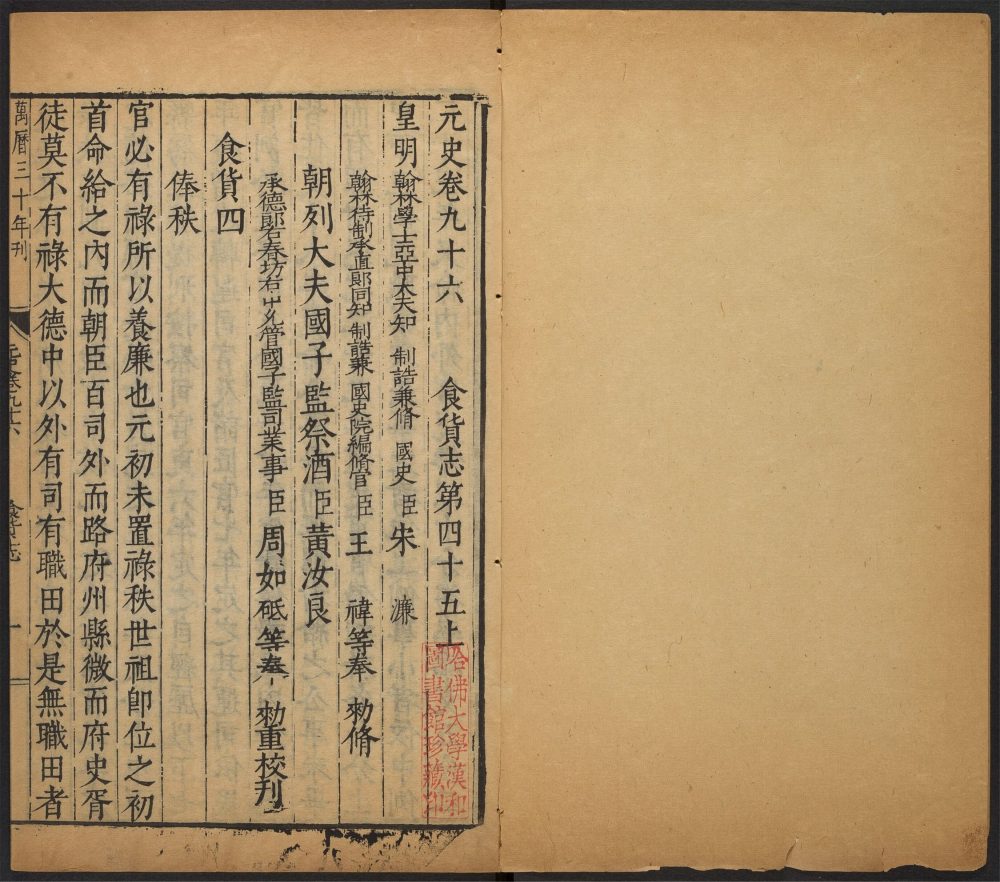 元史卷九十六 食貨志第四十五上
皇明翰林學士亞中大夫知 制誥兼脩 國史 臣 宋 濂
翰林待制承直郎同知 制誥兼 國史院編脩官 臣 王 禕等奉 勑脩
朝列大夫國子監祭酒 臣 黃汝良
承德郎右春坊右中允管國子監司業事 臣 周如砥等奉 勑重校刊
食貨四
俸秩
官必有祿所以養廉也元初未置祿秩世祖卽位之初
首命給之內而朝臣百司外而路府州縣微而府史胥
徒莫不有祿大德中以外有司有職田於是無職田者
萬曆三十年刊
元史卷九十六 食貨志 一
哈佛大學漢和
圖書館珍藏印